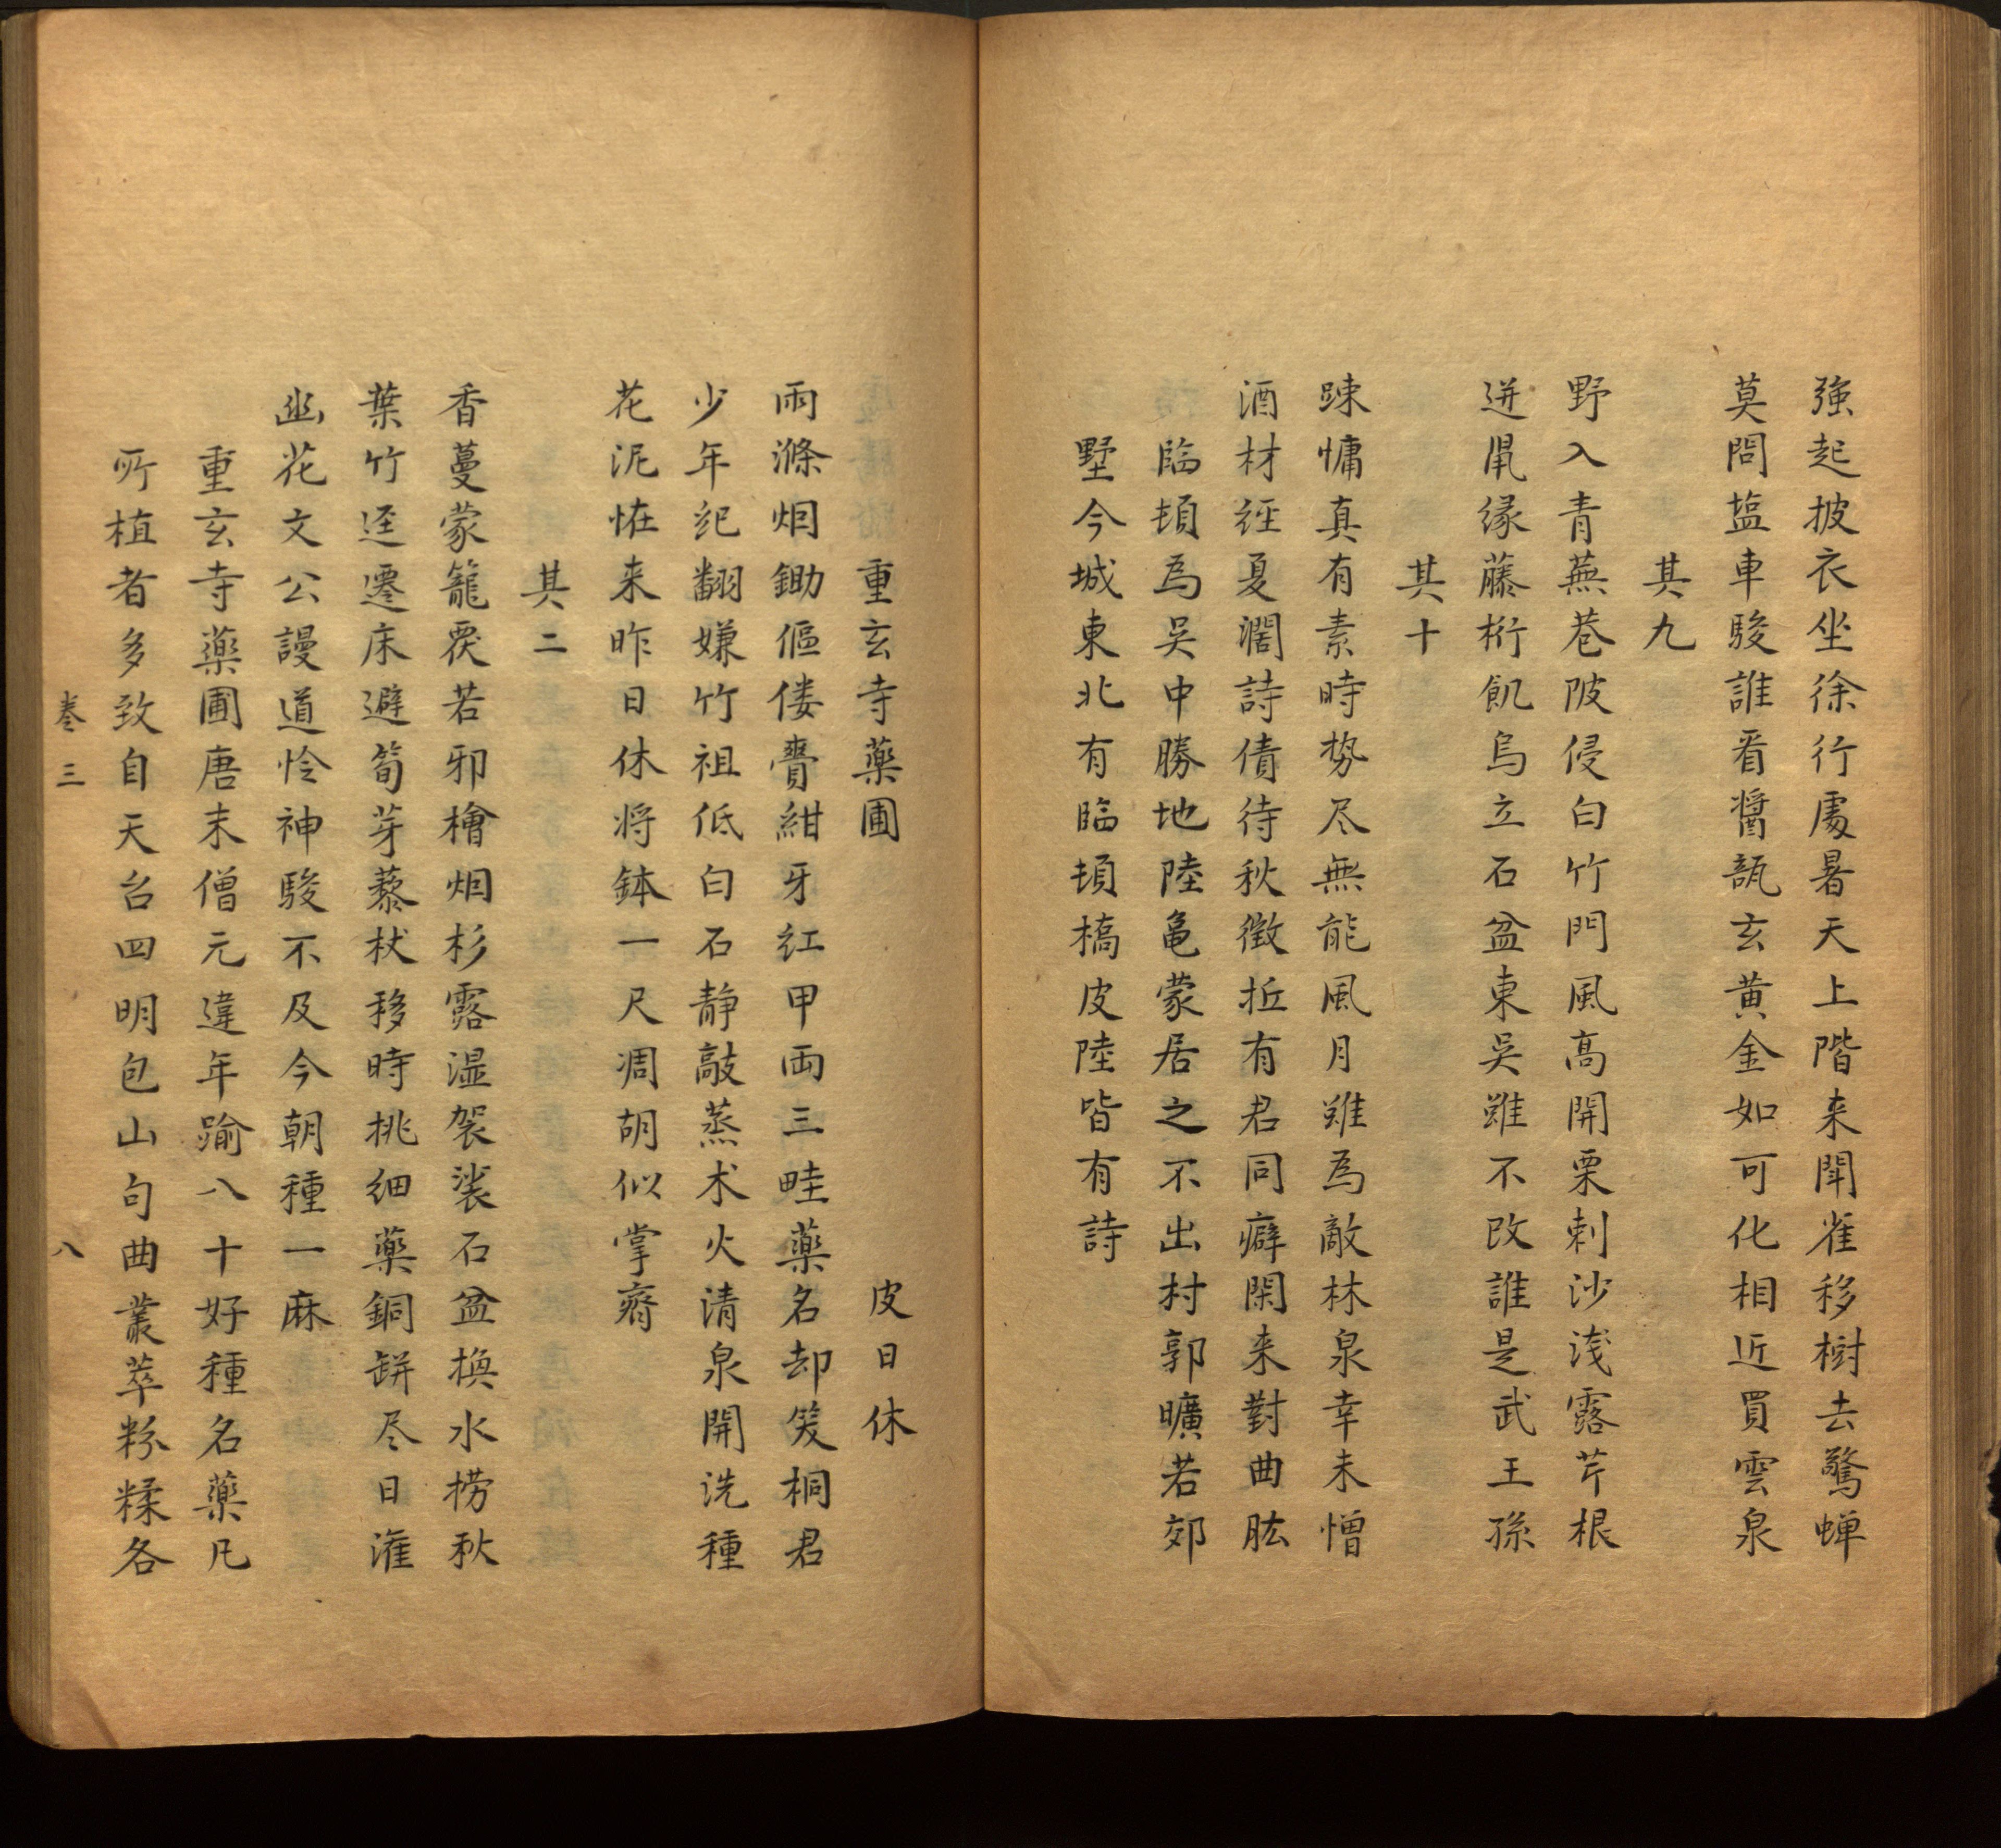 強起披衣坐徐行處暑天上階来聞雀移樹去驚蝉
莫問塩車駿誰看醬瓿玄黄金如可化相近買雲泉
其九
野入青蕪巷陂侵白竹門風高開栗刺沙浅露芹根
迸鼠緣藤桁飢烏立石盆東吳雖不改誰是武王孫
其十
踈慵真有素時势尽無能風月雖為敵林泉幸未憎
酒材經夏濶詩債待秋徵拞有君同癖閑来對曲肱
臨頓為吳中勝地陸亀蒙居之不出村郭曠若郊
墅今城東北有臨頓橋皮陸皆有詩
重玄寺藥圃
皮日休
雨滌烟鋤傴僂賷紺牙紅甲両三畦藥名却笑桐君
少年紀翻嫌竹祖低白石静敲蒸术火清泉開洗種
花泥恠来昨日休将鉢一尺凋胡似掌齊
其二
香蔓蒙籠覆若邪檜烟杉露湿袈裟石盆換水撈秋
葉竹迳遷床避筍芽藜杖移時挑细藥銅缾尽日滙
幽花文公謾道怜神駿不及今朝種一麻
重玄寺藥圃唐末僧元違年踰八十好種名藥凡
所植者多致自天台四明包山句曲叢萃粉糅各
卷三
八